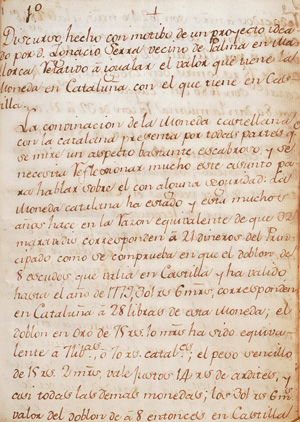 1º +
Discurso hecho con motibo de un proyecto idea
do por d. Ignacio Serra vecino de Palma en Ma
llorca, relativo à igualar el valor que tiene la
Moneda en Cataluña con el que tiene en Cas
tilla.
La convinacion de la Moneda castellana
con la catalana presenta por todas partes q.e
se mire un aspecto bastante escabroso, y se
necesita reflexionar mucho este asunto pa
ra hablar sobre el con alguna seguridad. La
Moneda catalana ha estado y está muchos
años hace en la razon equivalente de que 32
maravedis corresponden à 21 dineros del Prin
cipado como se comprueba en que el doblon de
8 escudos, que valia en Castilla y ha valido
hasta el año de 1779, 301 rs 6 mrs, corresponden
en Cataluña à 28 libras de esta Moneda; el
doblon en oro de 75 rs 10 mrs ha sido equiva
lente à 7 lib.as, o 70 rs. catal.es; el peso sencillo
de 15 rs. 2 mrs. vale justos 14 rs de ardites, y
casi todas las demas monedas; los 301 rs 6 mrs
valor del doblon de à 8 entonces en Castilla